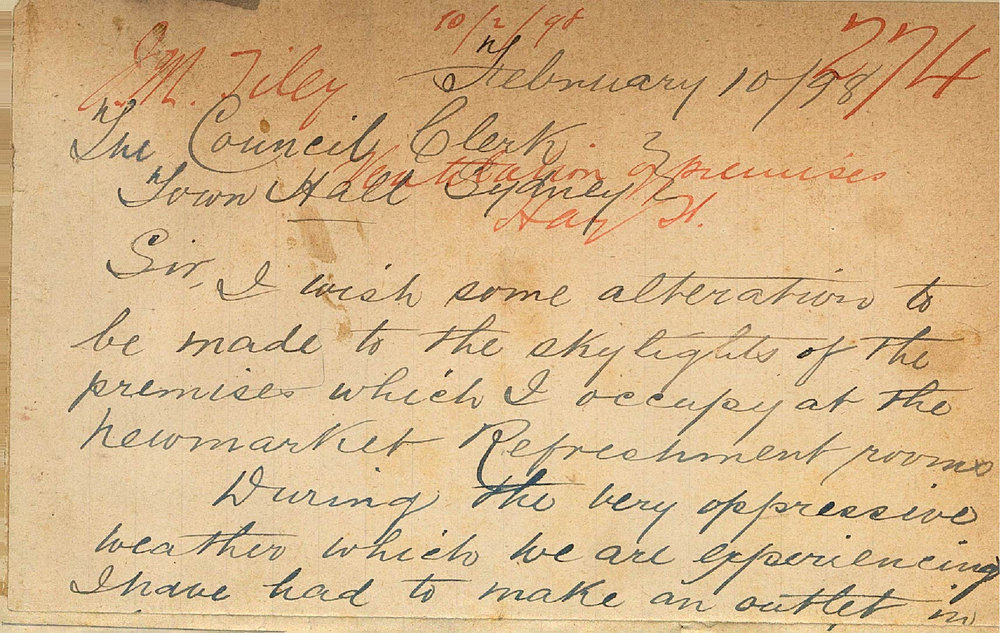 10/2/98
J. M. Tiley
274
February 10/98
The Council Clerk
Ventilation of premises
Town Hall Sydney
Hay St.
Sir, I wish some alteration to
be made to the skylights of the
premises which I occupy at the
Newmarket Refreshment rooms
During the very oppressive
weather which we are experiencing
I have had to make an outlet in